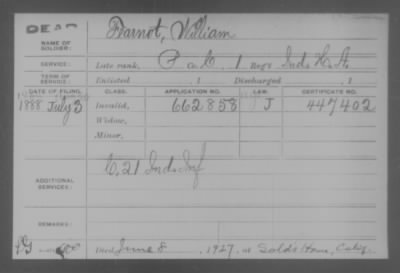 DEAD
NAME OF SOLDIER: Parrot, William
SERVICE: Late rank, P a C 1 Reg't Ind. H. A.
TERM OF SERVICE: Enlisted , 1 Discharged , 1
DATE OF FILING. CLASS. APPLICATION NO. LAW. CERTIFICATE NO.
1888 July 3 Invalid, 662858 J 447402
Widow,
Minor,
ADDITIONAL SERVICES: C, 21 Ind. Inf
REMARKS:
Died June 8, 1927, at Sold's Home, Calif.